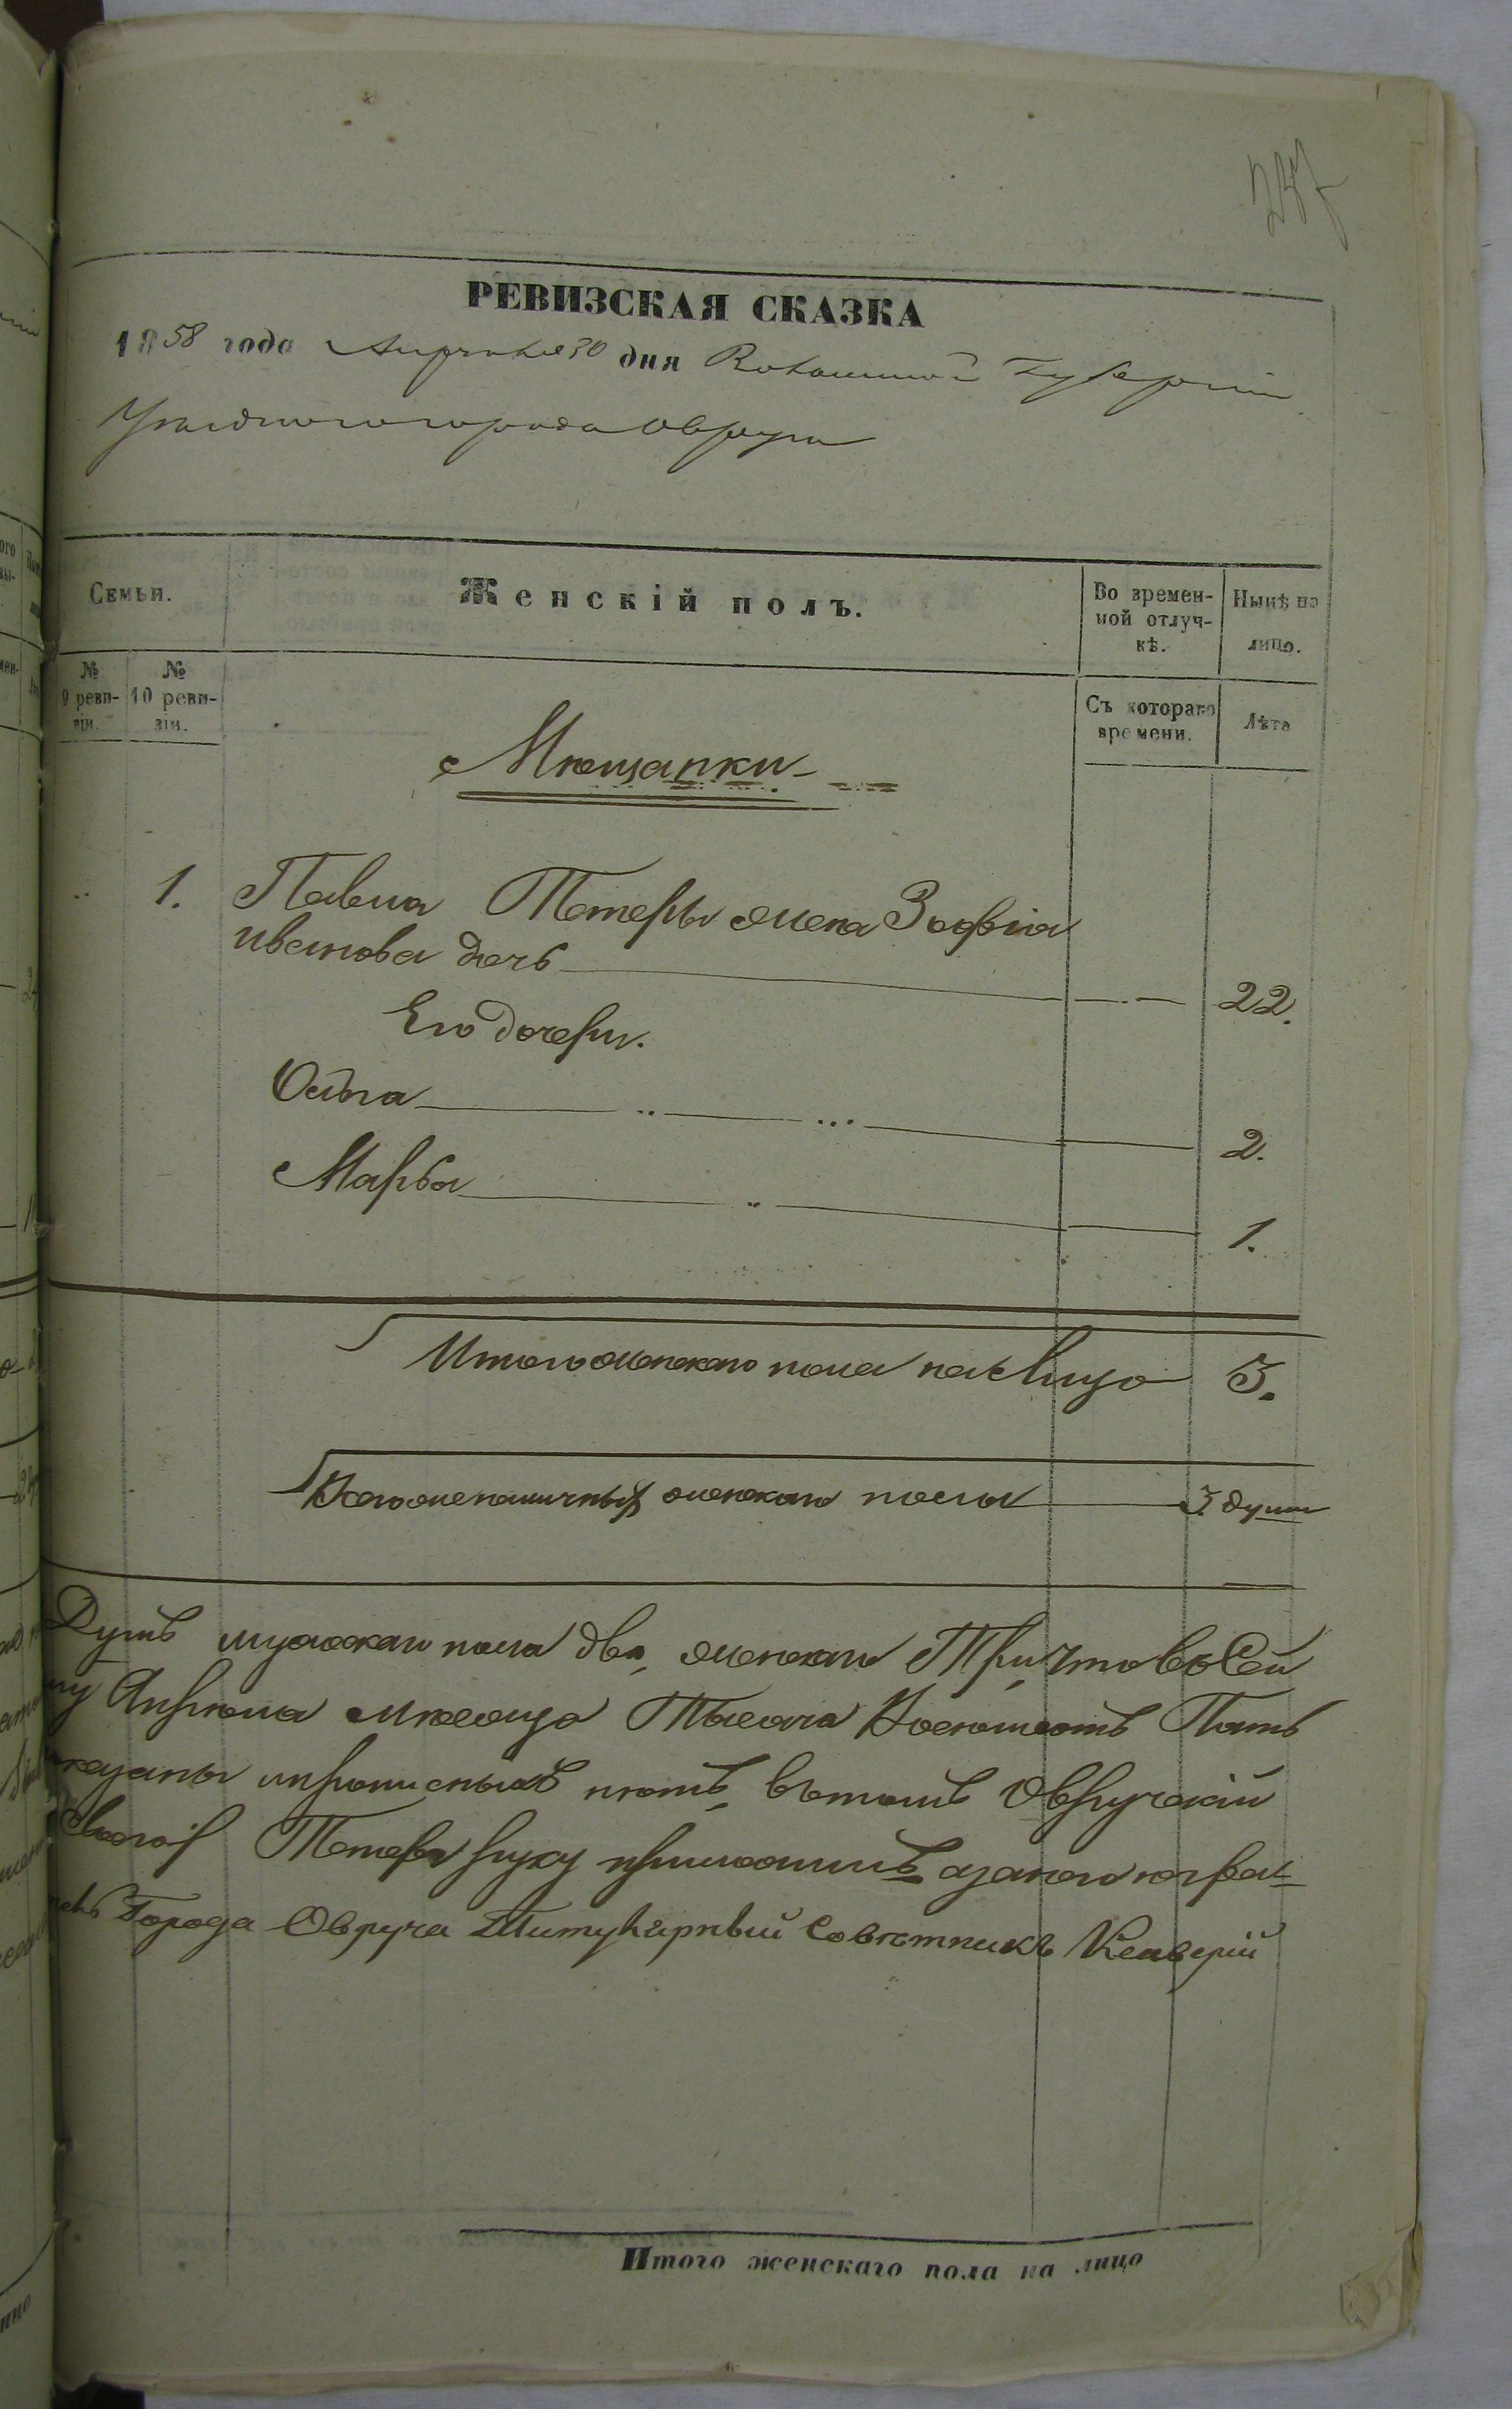 247
РЕВИЗСКАЯ СКАЗКА
1858 года Апреля 30 дня Волынской Губернии
Уездного города Овруча
Семьи.
Женскій полъ.
Во времен-
ной отлуч-
кѣ.
Нынѣ на
лицо.
№
9 реви-
зіи.
№
10 реви-
зіи.
Съ котораго
времени.
Лѣта
Мѣщанки
1. Павла Тетеры жена Зофія
Иванова дочь 22.
Его дочери.
2.
Марья 1.
Итого женскаго пола на Лицо 3.
Всего женскаго пола 3 души
Душъ мужскаго пола два, женскаго Три, Что въ Сей
Апрѣля мѣсяца Тысяча Восемьсотъ Пять
прописныхъ нѣтъ, въ томъ Овручскій
Тетера руку приложилъ, а за него неграм
Города Овруча Титулярный Совѣтникъ Ксаверій
Итого женскаго пола на лицо